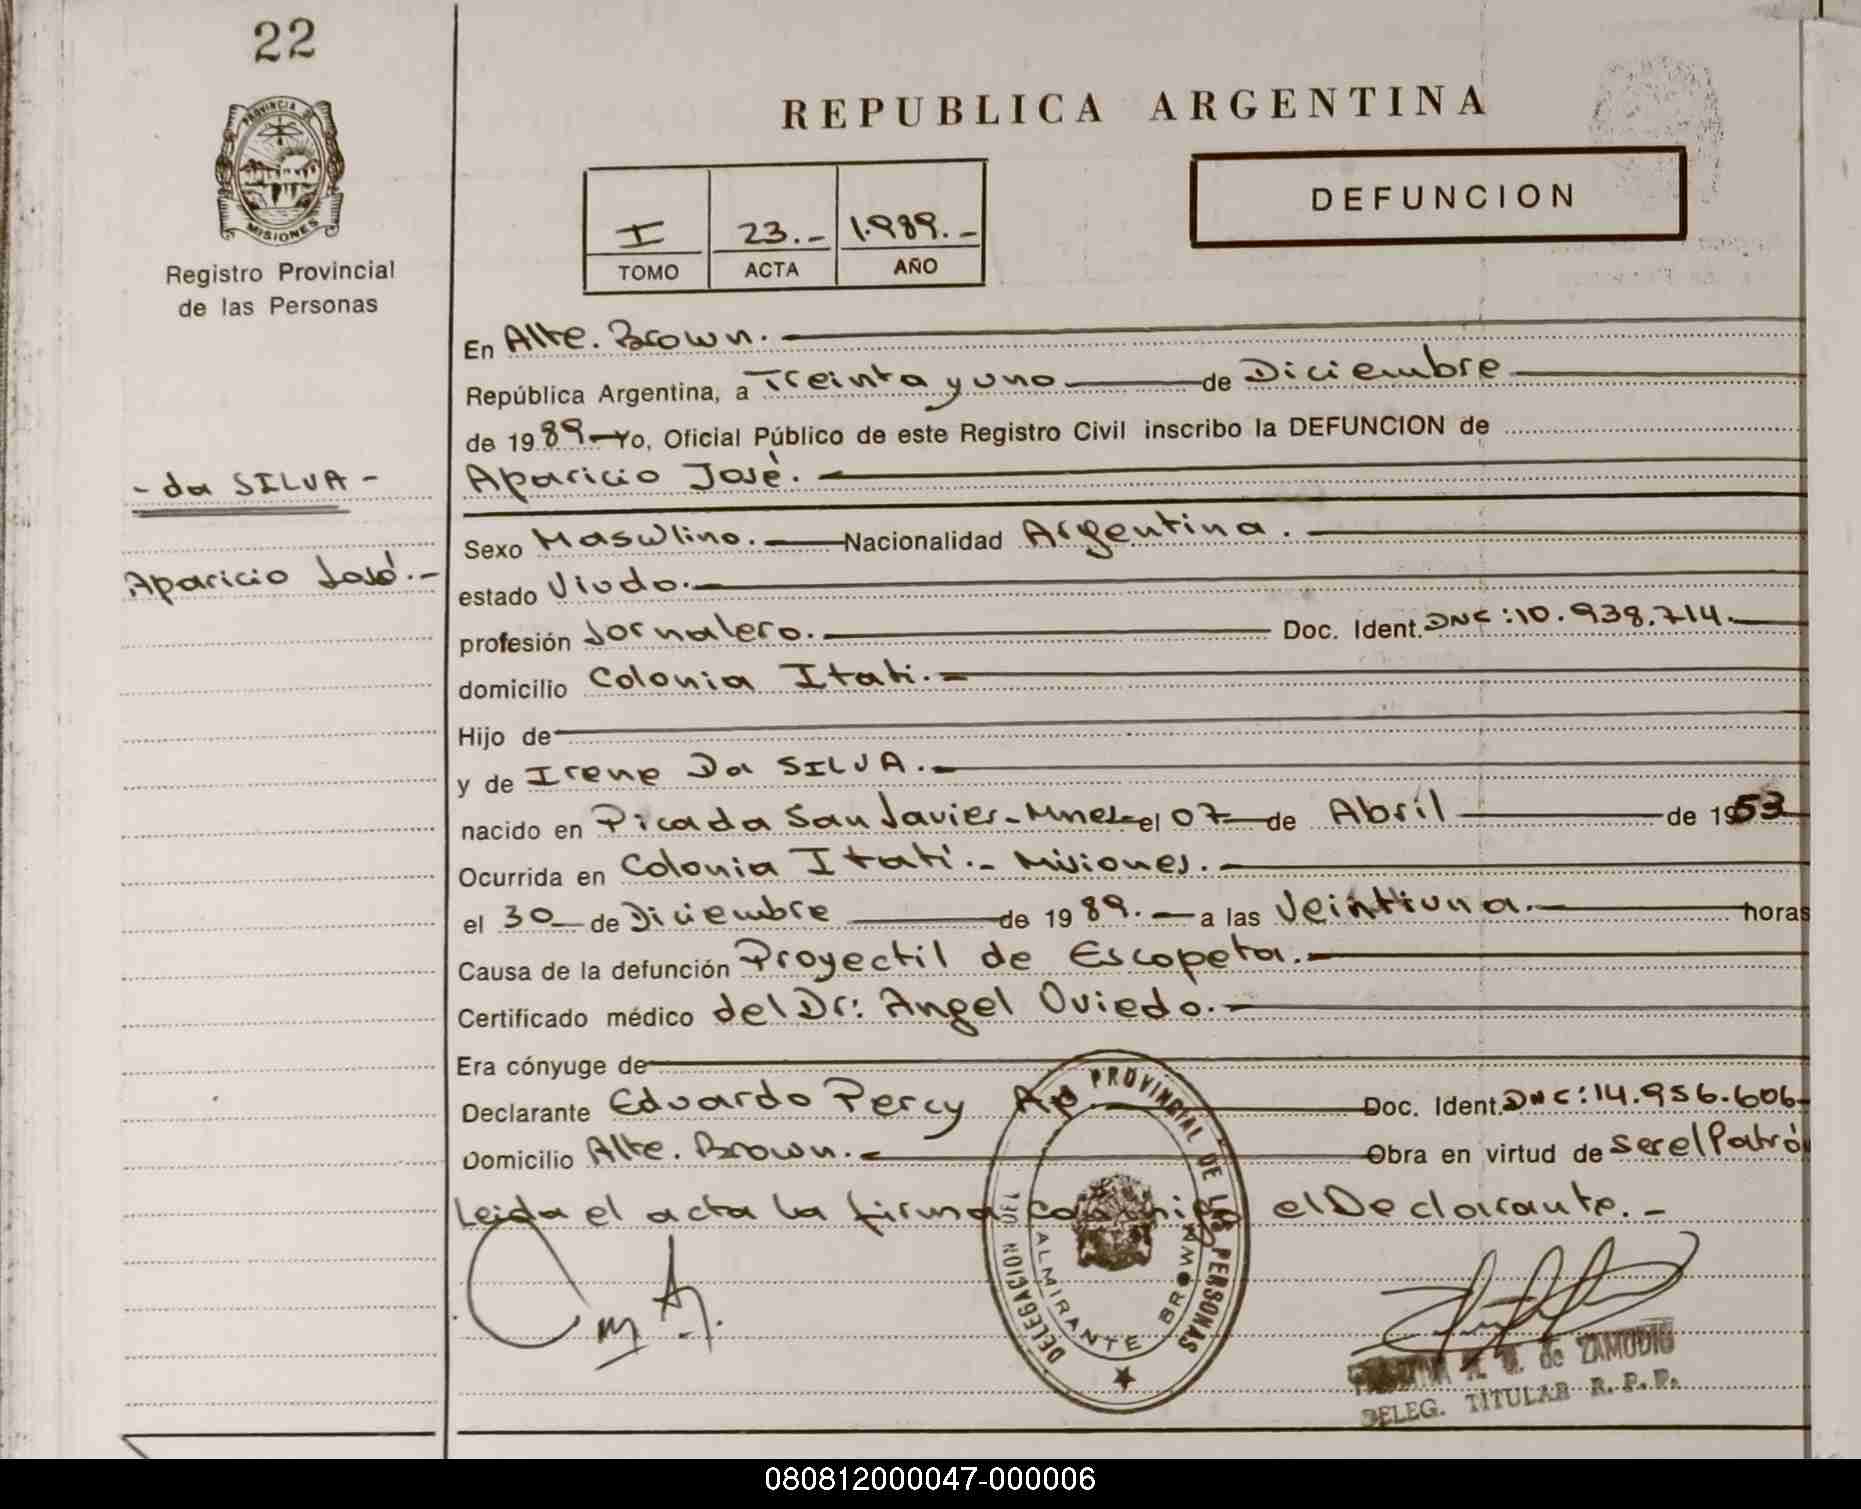 22
PROVINCIA DE
MISIONES
Registro Provincial
de las Personas
REPUBLICA ARGENTINA
I 23.- 1.989.-
TOMO ACTA AÑO
DEFUNCION
En Alte. Brown.
República Argentina, a Treinta y uno de Diciembre
de 1989 Yo, Oficial Público de este Registro Civil inscribo la DEFUNCION de
- da SILVA -
Aparicio José.
Aparicio José.-
Sexo Masculino. Nacionalidad Argentina.
estado Viudo.
profesión Jornalero. Doc. Ident. DNC: 10.938.714.
domicilio Colonia Itati.
Hijo de
y de Irene Da SILVA.
nacido en Picada San Javier - Mnes el 07 de Abril de 1953
Ocurrida en Colonia Itatí.- Misiones.
el 30 de Diciembre de 1989. a las Veintiuna. horas
Causa de la defunción Proyectil de Escopeta.
Certificado médico del Dr: Angel Oviedo.
Era cónyuge de
Declarante Eduardo Percy Doc. Ident. DNC: 14.956.606
Domicilio Alte. Brown. Obra en virtud de ser el Patrón
Leida el acta la firma conmigo el Declarante. -
DELEGACION DEL PROVINCIAL DE LAS PERSONAS
ALMIRANTE BROWN
de ZAMUDIO
DELEG. TITULAR R. P. P.
080812000047-000006